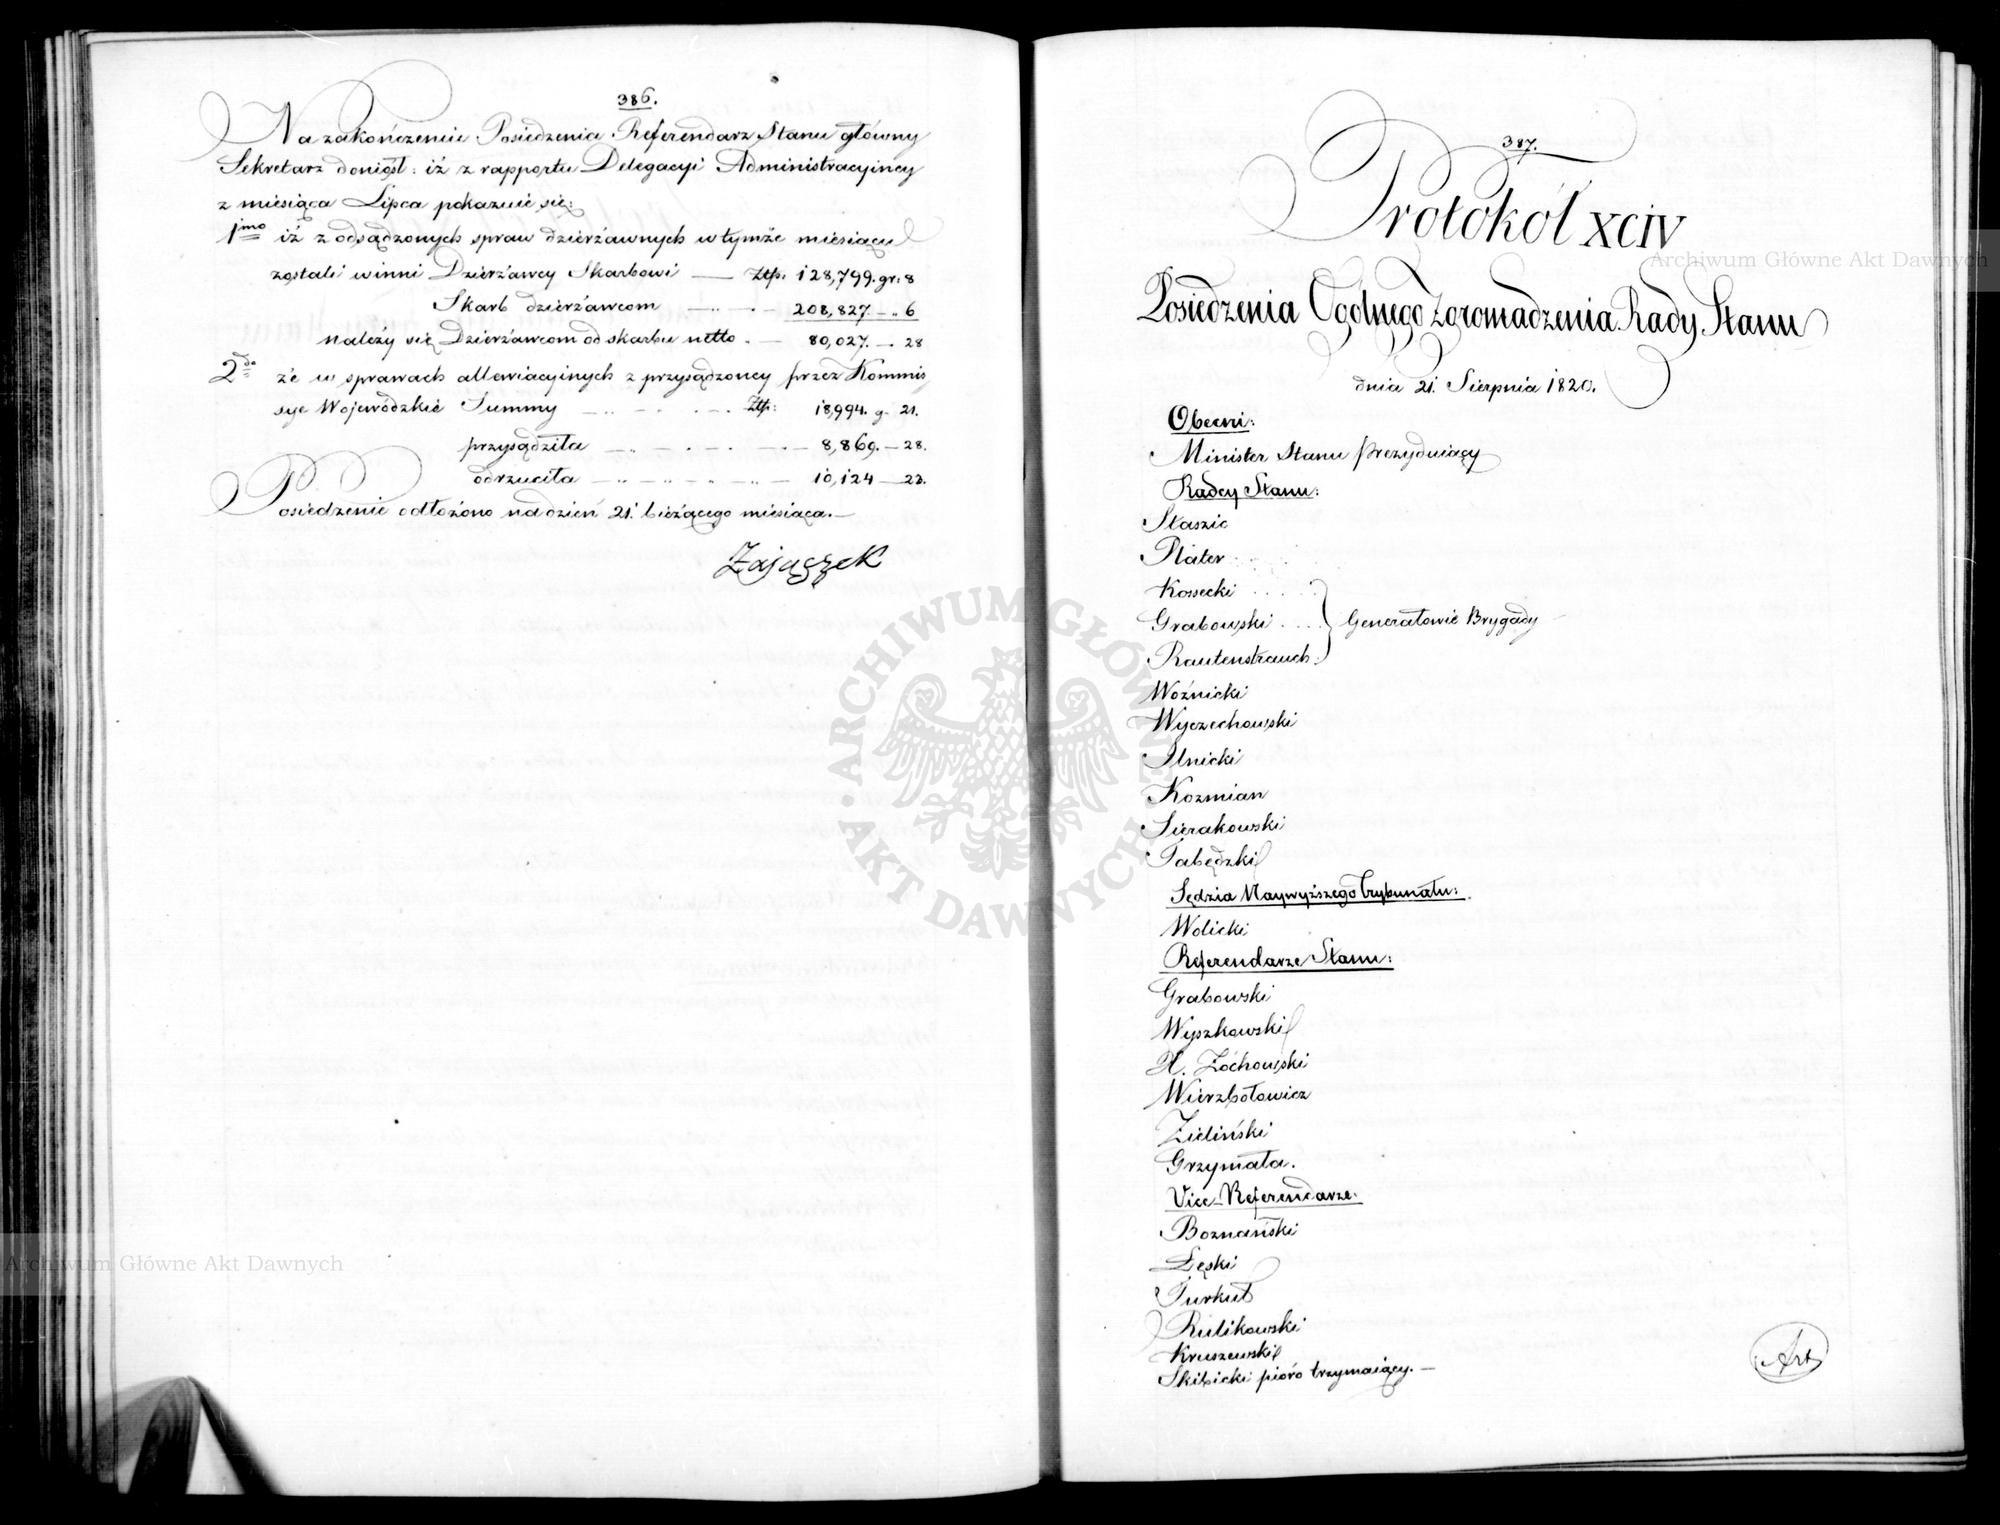 386.
Na zakończenie Posiedzenia Referendarz Stanu główny
Sekretarz doniósł: iż z rapportu Delegacyi Administracyiney
z miesiąca Lipca pokazuie się:
1mo iż z odsądzonych spraw dzierżawnych w tymże miesiącu
zostali winni Dzierżawcy Skarbowi — Złp: 128,799. gr: 8
Skarb dzierżawcom — 208,827. — 6
należy się Dzierżawcom od skarbu netto — 80,027. — 28
2do że w sprawach allewiacyinych z przysądzoney przez Kommis
sye Wojewódzkie Summy — Złp: 18,994. g. 21.
przysądziła — 8,869. — 28.
odrzuciła — 10,124 — 23.
Posiedzenie odłożono na dzień 21. bieżącego miesiąca. —
Zajączek
387.
Protokół XCIV
Posiedzenia Ogólnego Zgromadzenia Rady Stanu
dnia 21. Sierpnia 1820.
Obecni:
Minister Stanu Prezyduiący
Radcy Stanu:
Staszic
Plater
Kossecki
Grabowski
Generałowie Brygady
Rautenstrauch
Woźnicki
Wyczechowski
Ilnicki
Kozmian
Sierakowski
Tabędzki
Sędzia Naywyższego Trybunału:
Wolicki
Referendarze Stanu:
Grabowski
Wyszkowski
X. Żochowski
Wierzbołowicz
Zieliński
Grzymała.
Vice-Referendarze:
Boznański
Łęski
Turkuł
Rulikowski
Kruszewski
Skibicki pióro trzymaiący. —
Art
Archiwum Główne Akt Dawnych
Archiwum Główne Akt Dawnych
ARCHIWUM GŁÓWNE AKT DAWNYCH